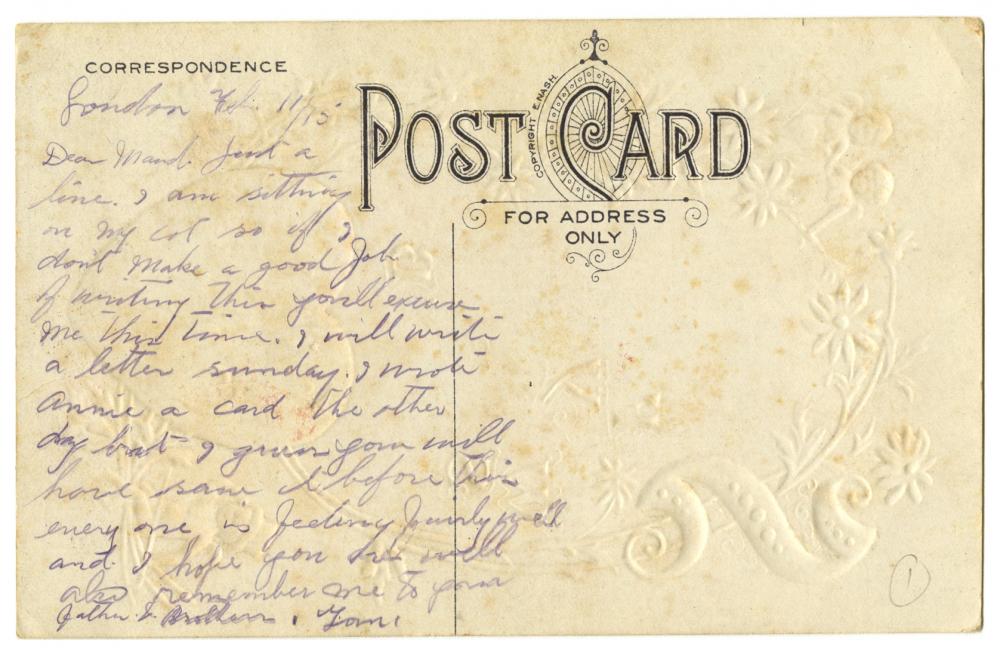 CORRESPONDENCE
POST CARD
COPYRIGHT E. NASH.
FOR ADDRESS
ONLY
London Feb. 11/15
Dear Maud. Just a
line. I am sitting
on my cot so if I
dont make a good Job
of writing this you'll excuse
me this time. I will write
a letter sunday. I wrote
Annie a card the other
day but I guess you will
have sawe it before this
every one is feeling fairly well
and I hope you are well
also remember me to your
Father & Brothers. Tom.
1